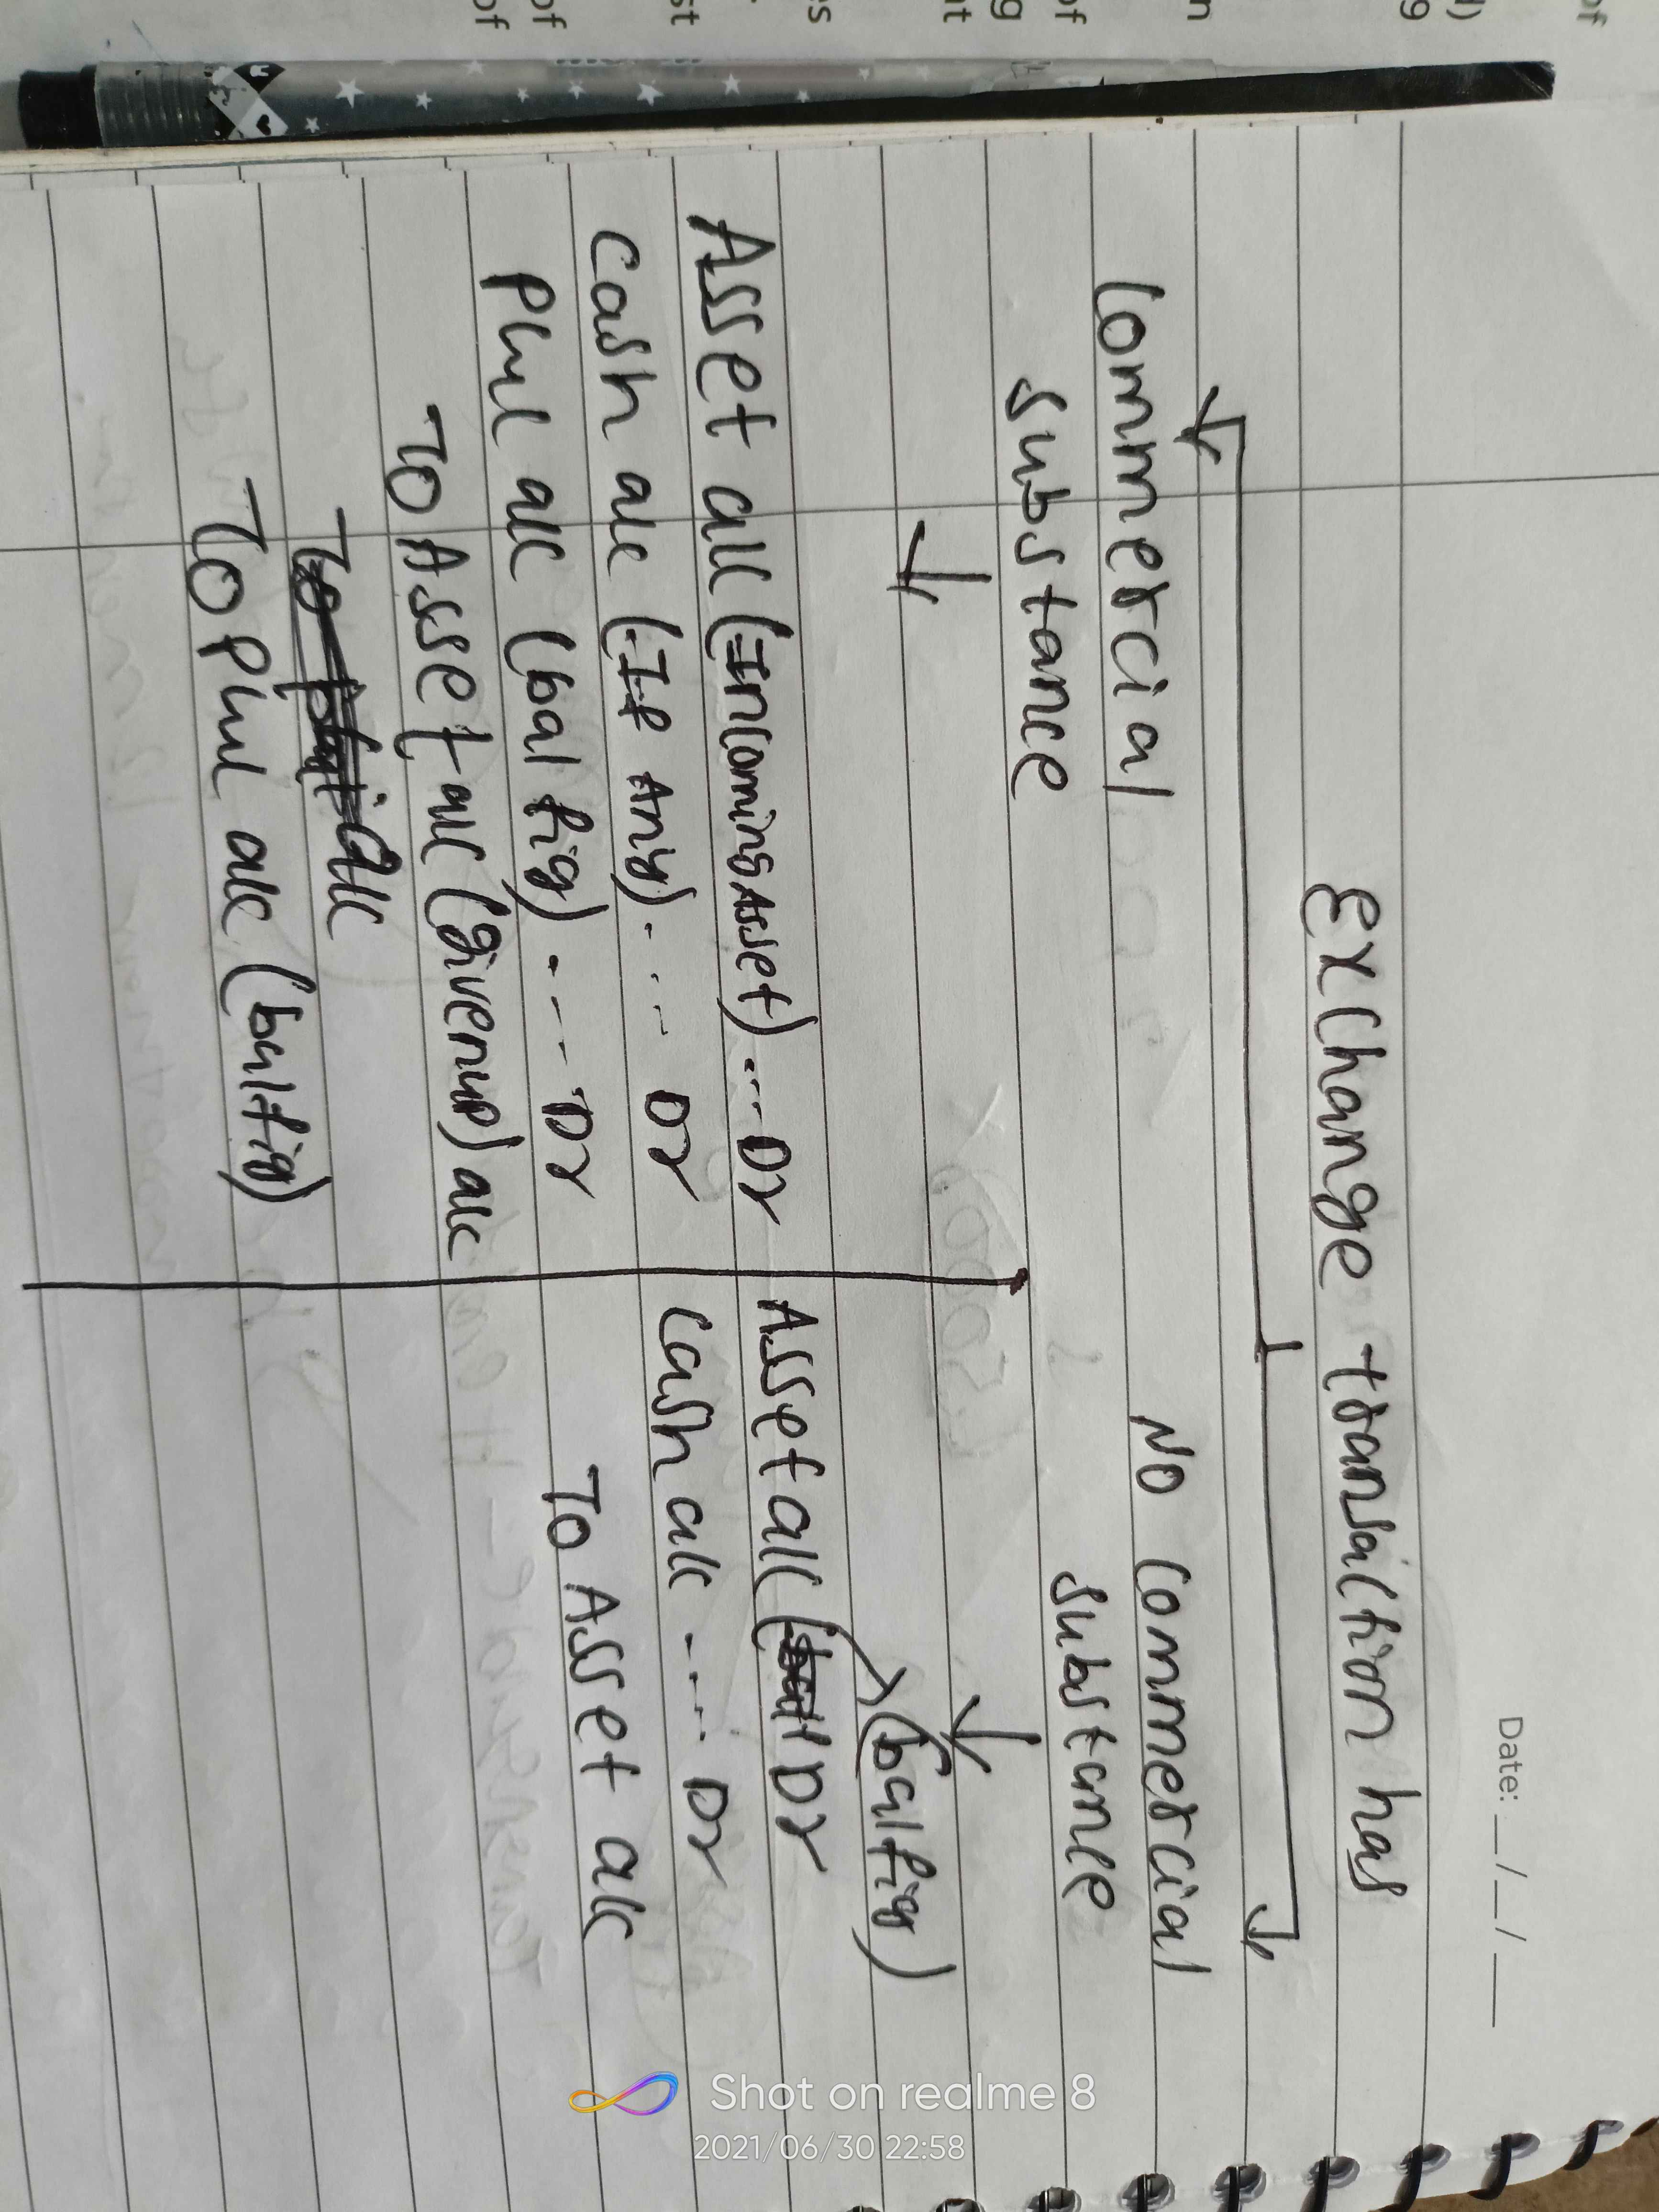 Date: __/__/__
Exchange transaction has
Commercial
substance
No commercial
substance
Asset a/c (Incoming Asset) ... Dr
Cash a/c (If Any) .... Dr
P&L a/c (bal fig) .... Dr
To Asset a/c (Givenup) a/c
To P&L a/c (bal fig)
(bal fig)
Asset a/c ( Dr
Cash a/c .... Dr
To Asset a/c
of
g
l)
n
of
g
at
s
st
of
of
Shot on realme 8
2021/06/30 22:58